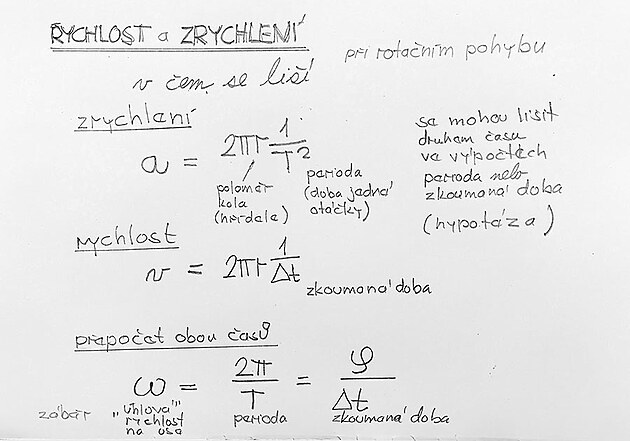 RYCHLOST a ZRYCHLENÍ
při rotačním pohybu
v čem se liší
zrychlení
a = 2πr 1/T²
poloměr
kola
(hřídele)
perioda
(doba jedné
otáčky)
se mohou lišit
druhem času
ve výpočtech
perioda nebo
zkoumaná doba
(hypotéza)
rychlost
v = 2πr 1/Δt
zkoumaná doba
přepočet obou časů
ω = 2π/T = φ/Δt
záběr
"úhlová"
rychlost
na ose
perioda
zkoumaná doba